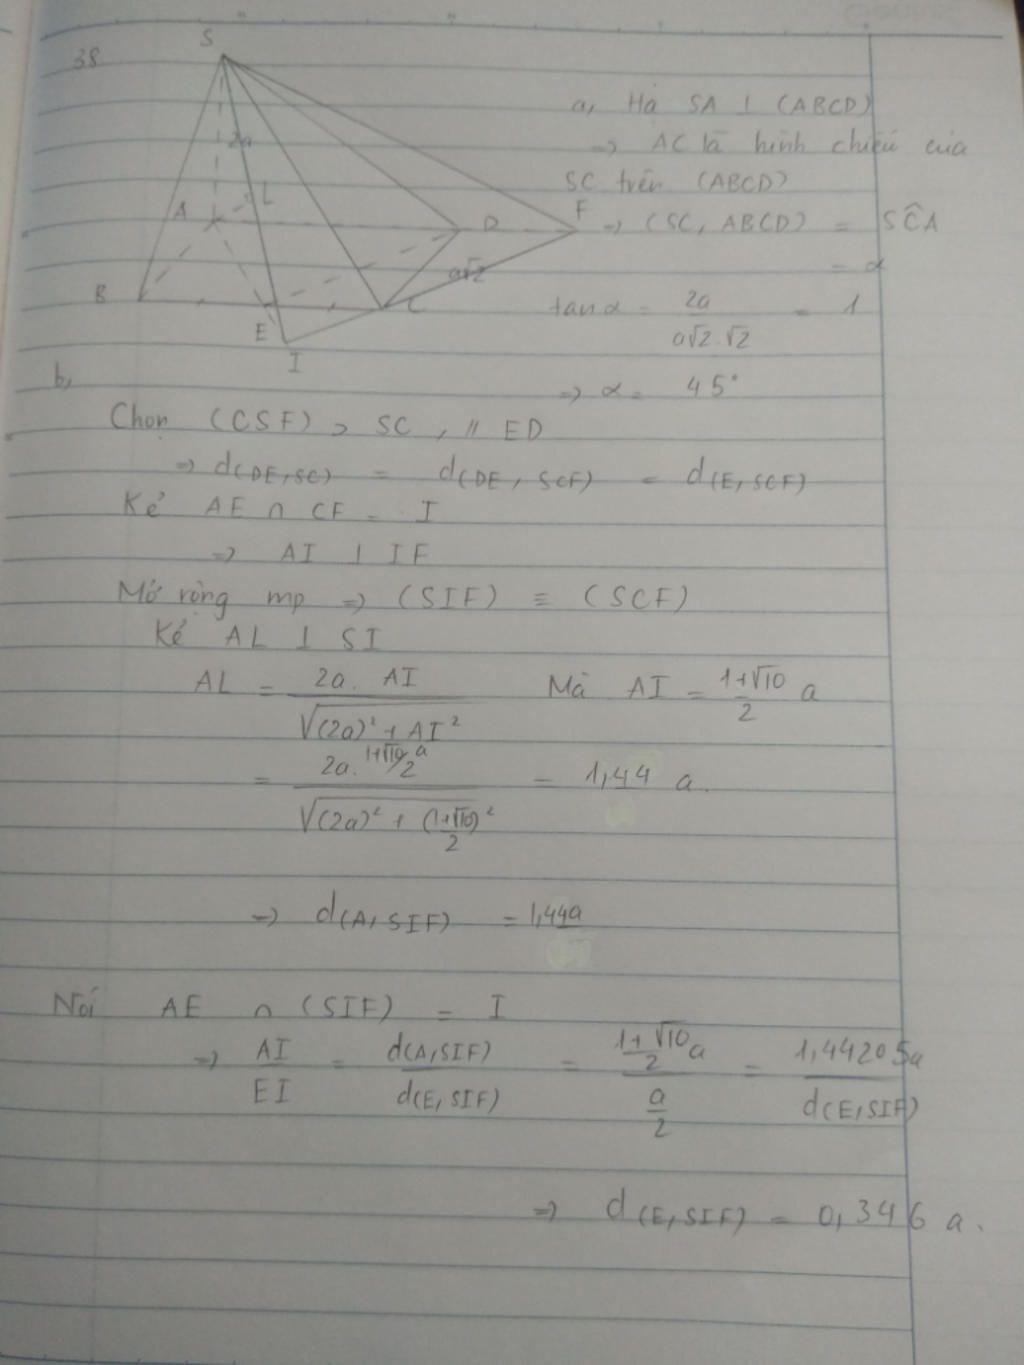 38
S
2a
A
L
D
F
B
E
C
I
a√2
a, Hạ SA ⊥ (ABCD)
=> AC là hình chiếu của
SC trên (ABCD)
=> (SC, ABCD) = SĈA
= α
tanα = 2a / a√2.√2 = 1
=> α = 45°
b,
Chọn (CSF) ⊃ SC, // ED
=> d(DE, SC) = d(DE, SCF) = d(E, SCF)
Kẻ AE ∩ CF = I
=> AI ⊥ IF
Mở rộng mp => (SIF) ≡ (SCF)
Kẻ AL ⊥ SI
AL = 2a. AI / √(2a)² + AI² Mà AI = 1+√10 / 2 a
= 2a. 1+√10/2 a / √(2a)² + (1+√10 / 2)² = 1,44 a.
=> d(A, SIF) = 1,44a
Nối AE ∩ (SIF) = I
=> AI / EI = d(A, SIF) / d(E, SIF) = 1+√10 / 2 a / a / 2 = 1,44205a / d(E, SIF)
=> d(E, SIF) = 0,346 a.